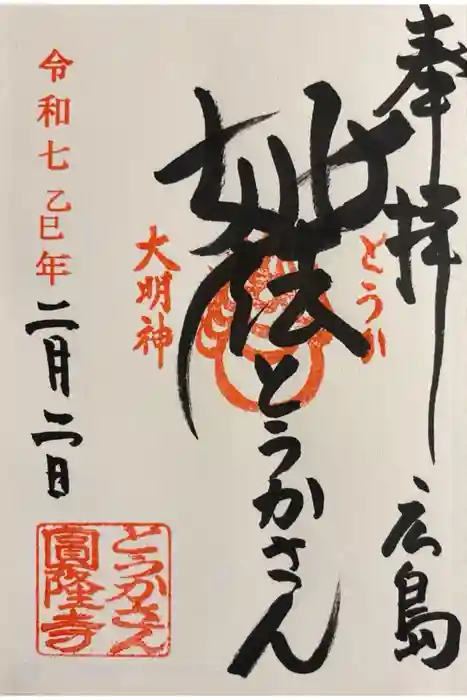 奉拝 広島
とうか
妙法 とうかさん
大明神
令和七乙巳年 二月二日
とうかさん
圓隆寺